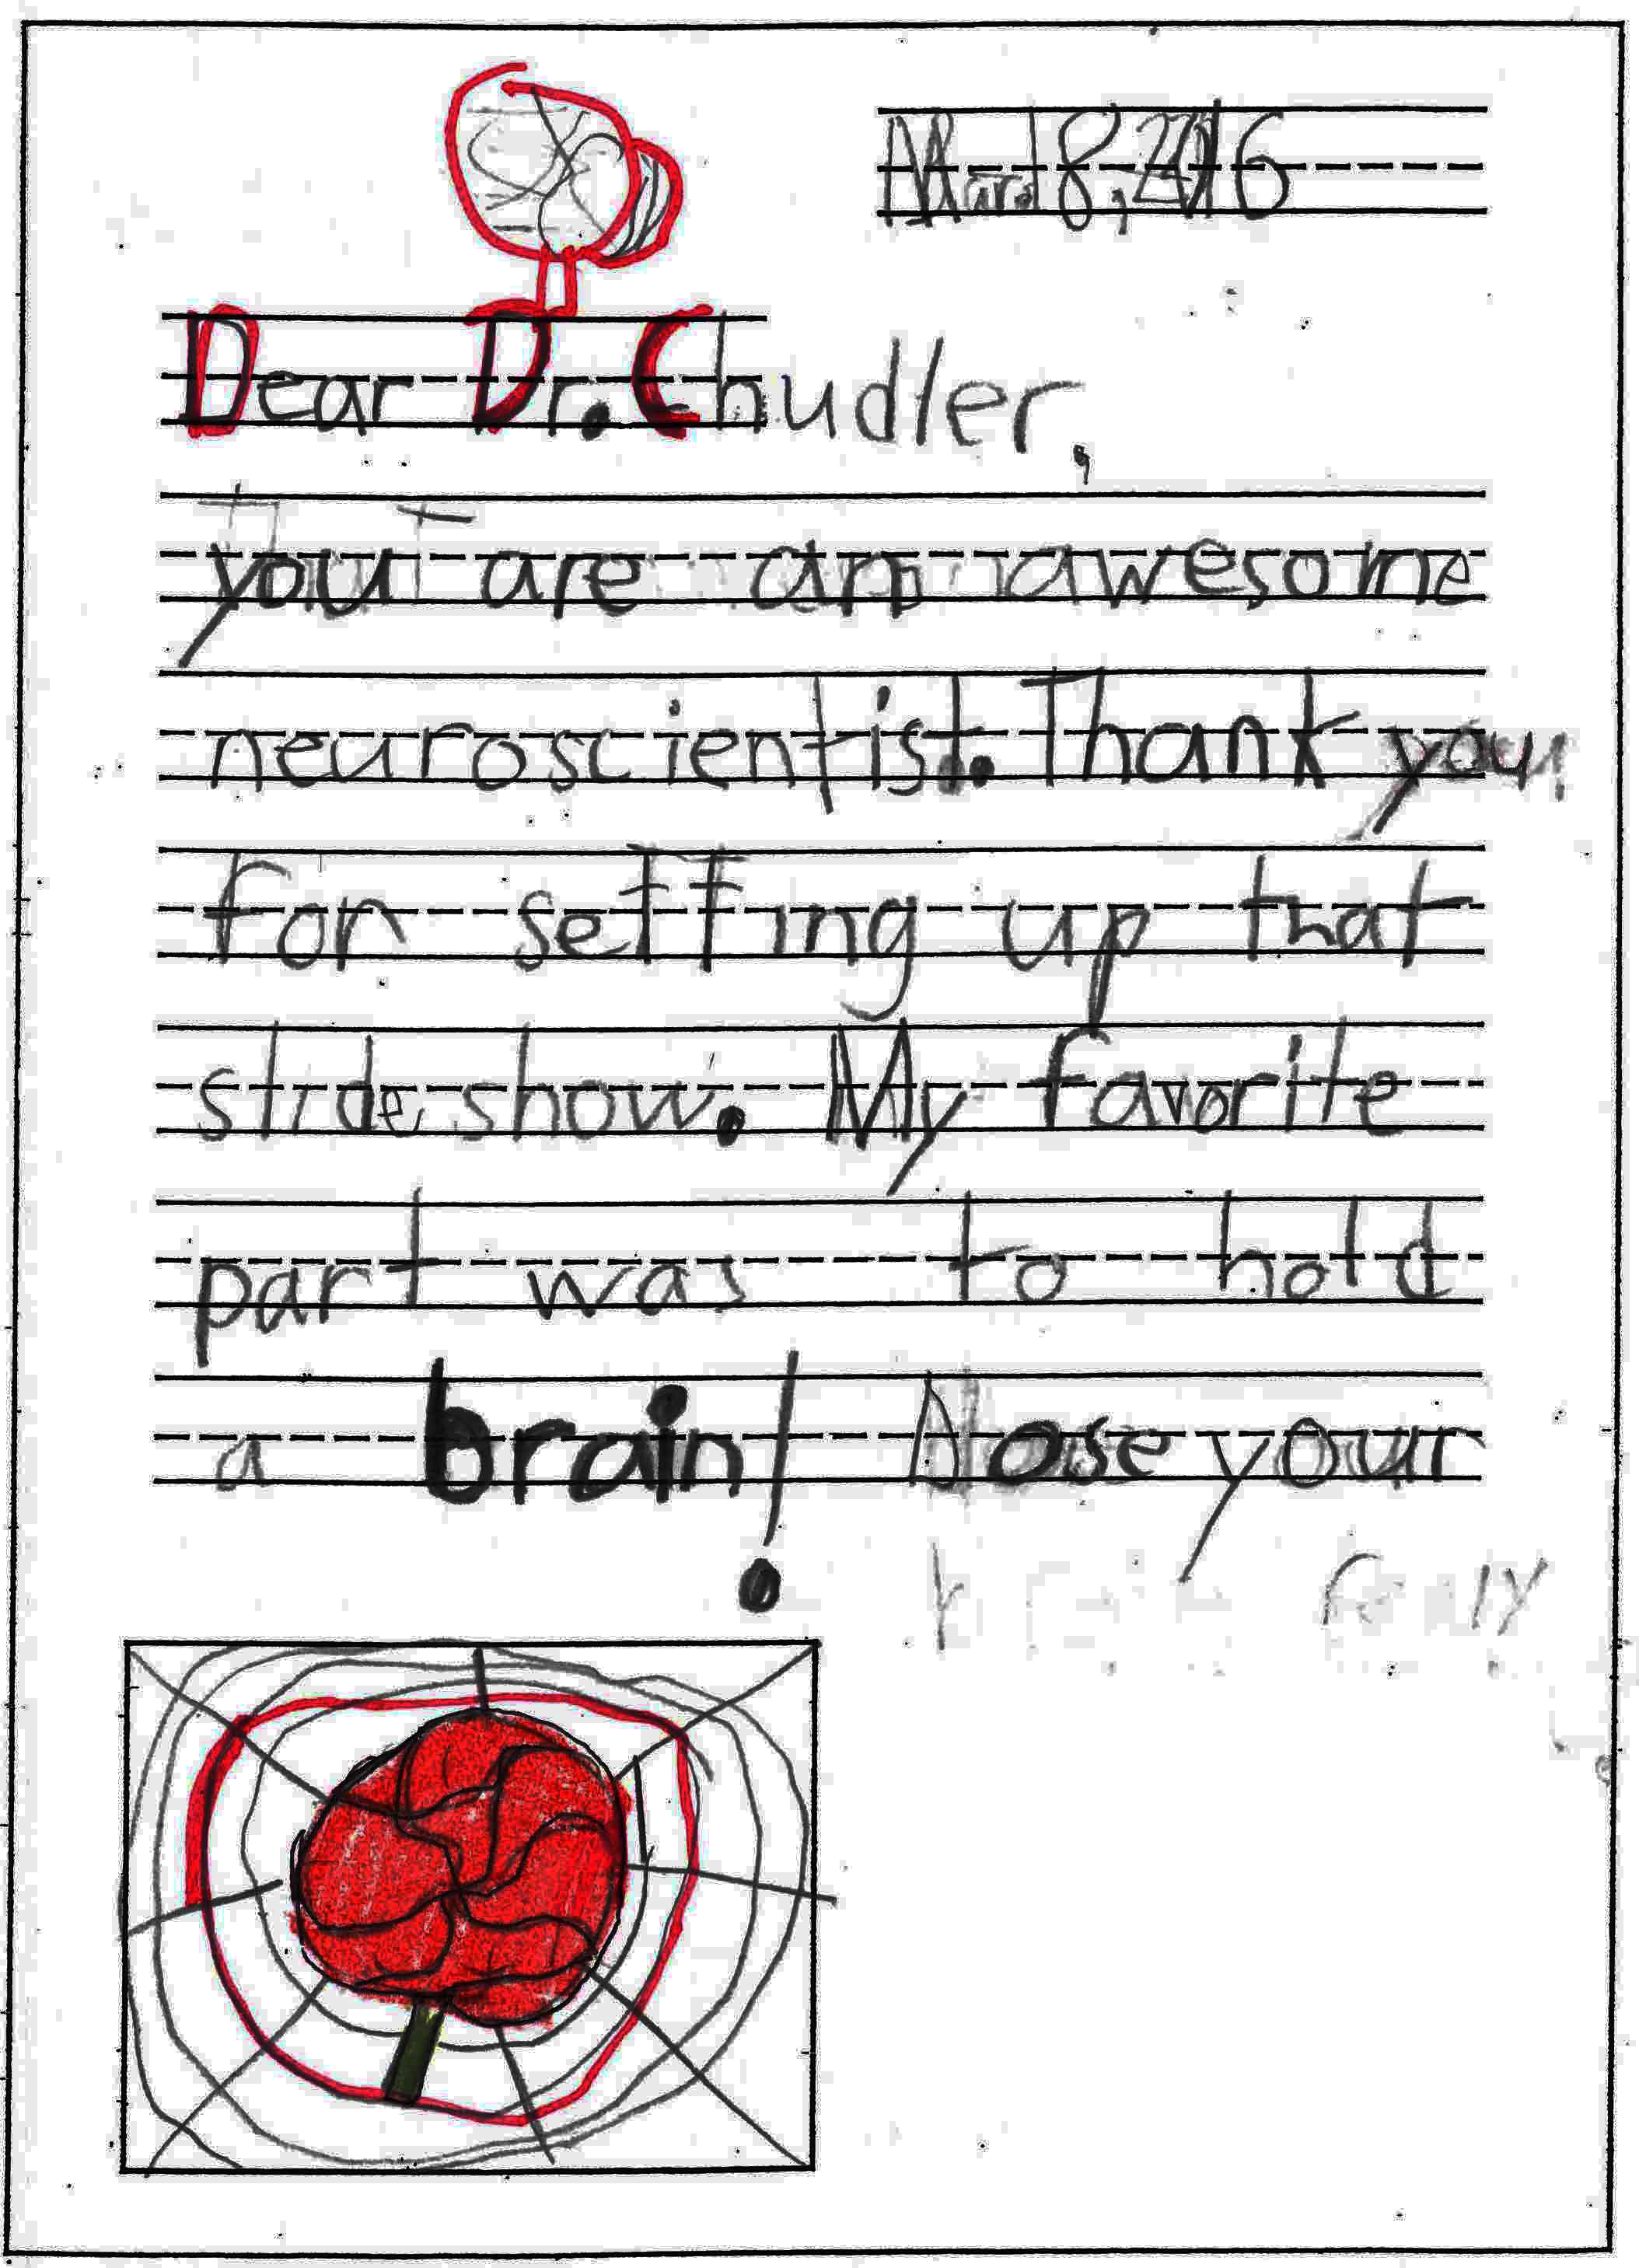 March 8, 2016
Dear Dr. Chudler,
you are an awesome
neuroscientist. Thank you
for setting up that
slide show. My favorite
part was to hold
a brain! your